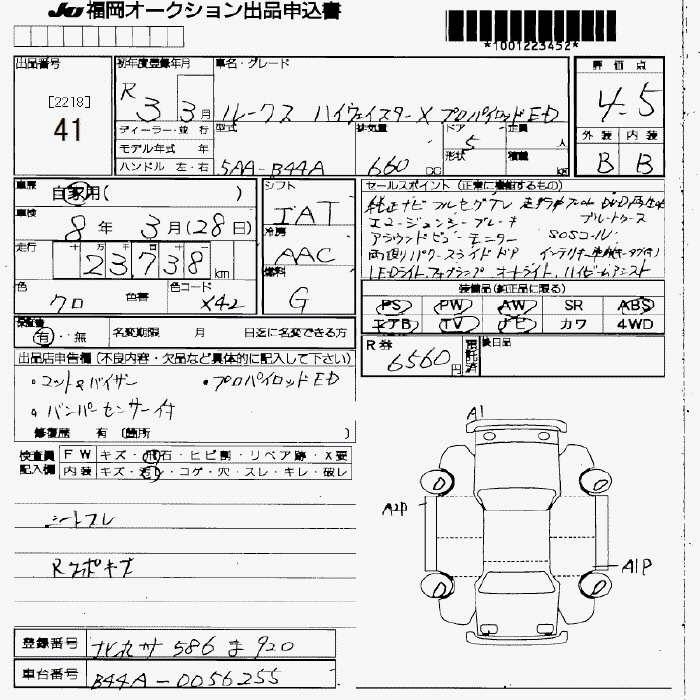 JU 福岡オークション出品申込書
*1001223452*
出品番号 初年度登録年月 車名・グレード 評価点
[2218]
41
R 3 3月 ルークス ハイウェイスターX プロパイロットED
4.5
ディーラー・並行 型式 排気量 ドア 5 定員 人
外装 内装
モデル年式 年
形状 積載
ハンドル 左・右 5AA-B44A 660 cc kg
B B
車歴 自家用( )
シフト IAT
セールスポイント (正常に機能するもの)
純正ナビ フルセグTV
エマージェンシーブレーキ ブルートゥース
アラウンドビューモニター SOSコール
両側パワースライドドア
LEDライト フォグランプ オートライト ハイビームアシスト
車検 8年 3月(28日)
冷房 AAC
走行 十 万 千 百 十
23738 km
燃料 G
色 クロ 色替 色コード X42
装備品(純正品に限る)
PS PW AW SR ABS
エアB TV ナビ カワ 4WD
保証書 有・無 名変期限 月 日迄に名変できる方
R券 6560円 預託済 後日品
出品店申告欄 (不良内容・欠品など具体的に記入して下さい)
・マット&バイザー ・プロパイロットED
・バンパーセンサー付
修復歴 有 (箇所 )
検査員記入欄
FW キズ・飛石・ヒビ割・リペア跡・X要
内装 キズ・汚れ・コゲ・穴・スレ・キレ・破レ
シートスレ
Rスポキズ
A1
A2P
A1P
登録番号 北九州 586 ま 920
車台番号 B44A-0056255